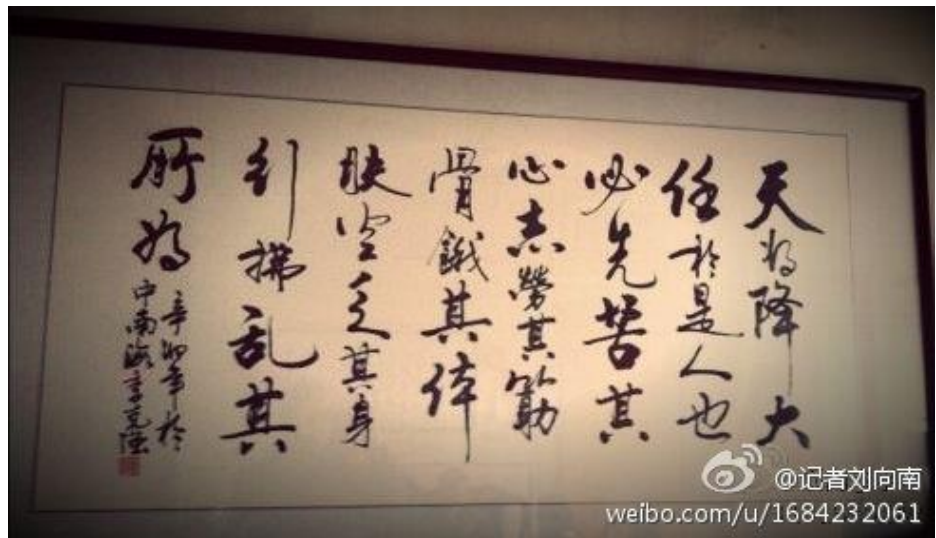 天将降大
任於是人也
必先苦其
心志勞其筋
骨餓其体
肤空乏其身
行拂乱其
所为
辛卯年於
中南海李克强
@记者刘向南
weibo.com/u/1684232061